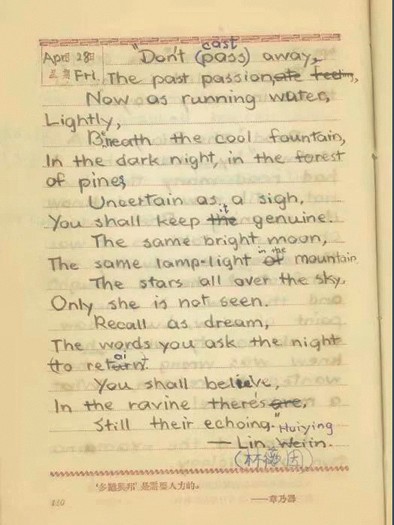 April 28日 "Don't (pass) cast away,
星期 Fri. The past passion, ate feel,
Now as running water,
Lightly,
Beneath the cool fountain,
In the dark night, in the forest
of pines,
Uncertain as a sigh,
You shall keep the it genuine.
The same bright moon,
The same lamp-light of in the mountain
The stars all over the sky,
Only she is not seen.
Recall as dream,
The words you ask the night
(to return. ai
You shall believe,
In the ravine there's are,
Still their echoing."
— Lin Weiin. Huiying
(林徽因)
"多难兴邦"是需要人力的。
410 ——章乃器